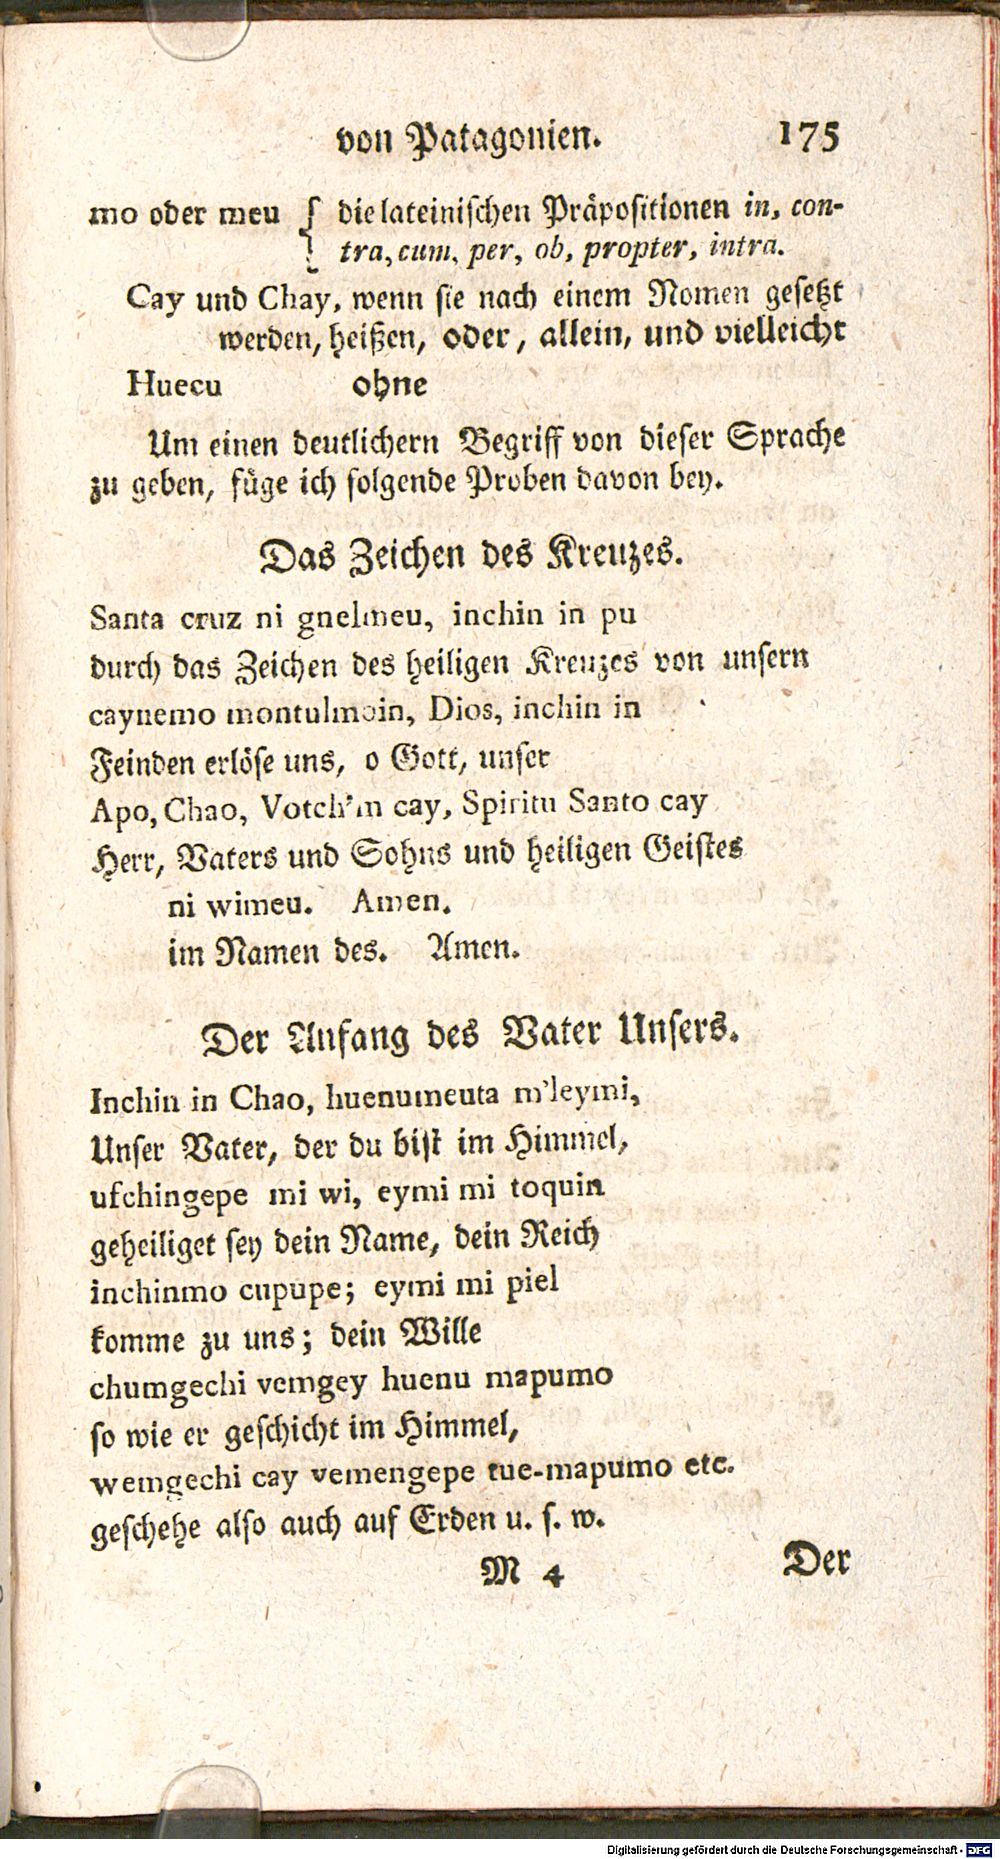 von Patagonien. 175
mo oder meu { die lateinischen Präpositionen in, con-
tra, cum, per, ob, propter, intra.
Cay und Chay, wenn sie nach einem Nomen gesetzt
werden, heißen, oder, allein, und vielleicht
Huecu ohne
Um einen deutlichern Begriff von dieser Sprache
zu geben, füge ich folgende Proben davon bey.
Das Zeichen des Kreuzes.
Santa cruz ni gnelmeu, inchin in pu
durch das Zeichen des heiligen Kreuzes von unsern
caynemo montulmoin, Dios, inchin in
Feinden erlöse uns, o Gott, unser
Apo, Chao, Votch'm cay, Spiritu Santo cay
Herr, Vaters und Sohns und heiligen Geistes
ni wimeu. Amen.
im Namen des. Amen.
Der Anfang des Vater Unsers.
Inchin in Chao, huenumeuta m'leymi,
Unser Vater, der du bist im Himmel,
ufchingepe mi wi, eymi mi toquin
geheiliget sey dein Name, dein Reich
inchinmo cupupe; eymi mi piel
komme zu uns; dein Wille
chumgechi vemgey huenu mapumo
so wie er geschicht im Himmel,
wemgechi cay vemengepe tue-mapumo etc.
geschehe also auch auf Erden u. s. w.
M 4 Der
Digitalisierung gefördert durch die Deutsche Forschungsgemeinschaft - DFG